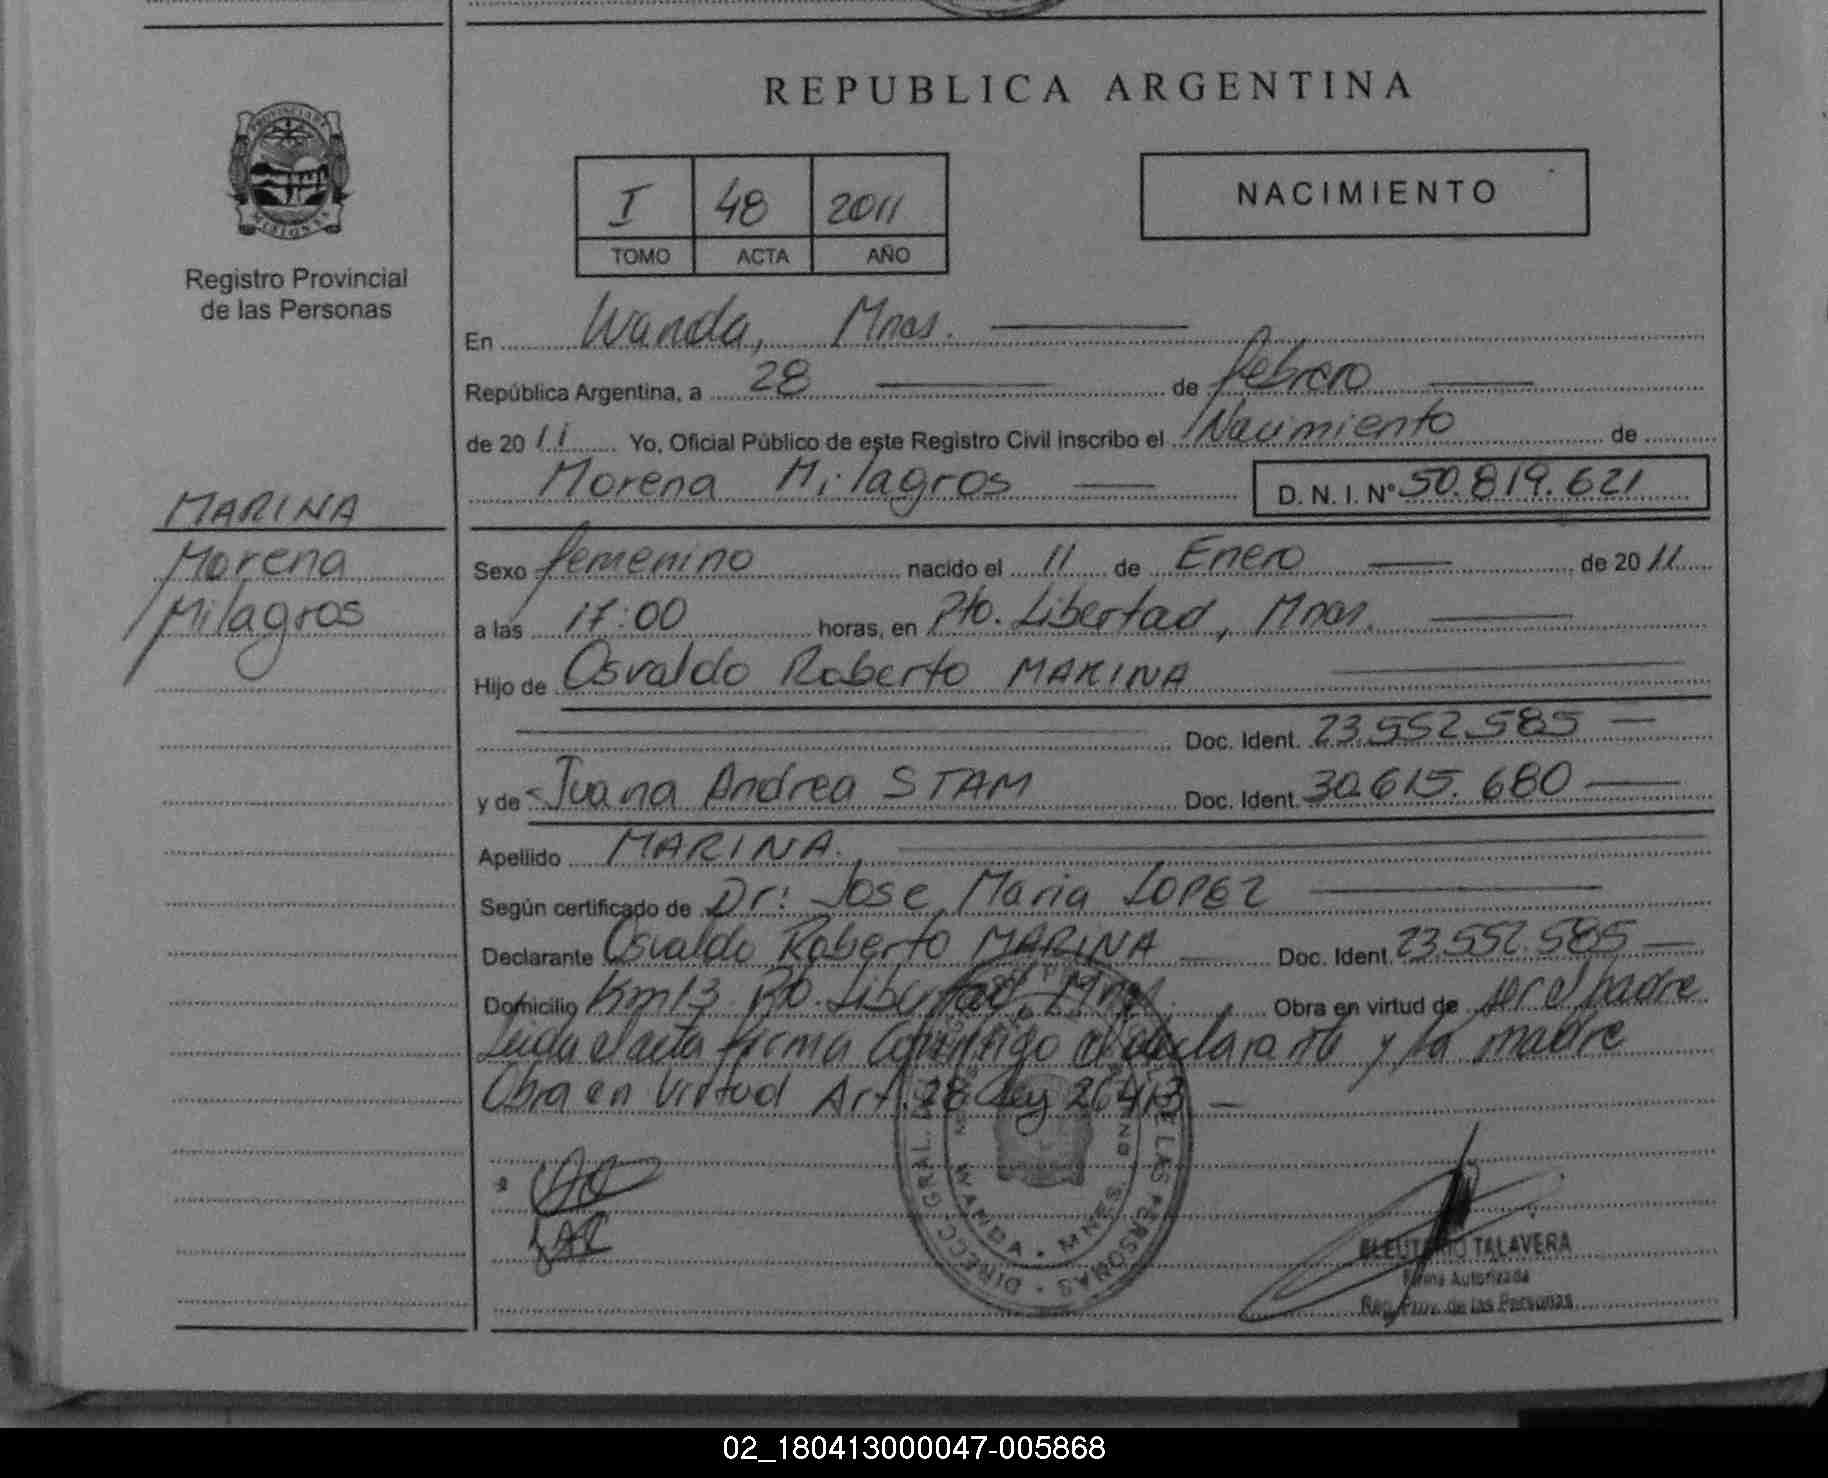 REPUBLICA ARGENTINA
I 48 2011
TOMO ACTA AÑO
NACIMIENTO
PROVINCIA DE MISIONES
Registro Provincial
de las Personas
En Wanda, Mnes.
República Argentina, a 28 de febrero
de 2011 Yo, Oficial Público de este Registro Civil inscribo el Nacimiento de
Morena Milagros D. N. I. Nº 50.819.621
MARINA
Morena
Milagros
Sexo femenino nacido el 11 de Enero de 2011
a las 17:00 horas, en Pto. Libertad, Mnes.
Hijo de Osvaldo Roberto MARINA
Doc. Ident. 23.552.585
y de Juana Andrea STAM Doc. Ident. 30.615.680
Apellido MARINA.
Según certificado de Dr: Jose Maria LOPEZ
Declarante Osvaldo Roberto MARINA Doc. Ident. 23.552.585
Domicilio Km 13 Pto. Libertad, Mnes. Obra en virtud de ser el padre
Leida el acta firma conmigo el declarante y la madre
Obra en Virtud Art. 28 Ley 26413
DIRECC. GRAL. DE LAS PERSONAS
WANDA - MNES
ELEUTERIO TALAVERA
Firma Autorizada
Reg. Prov. de las Personas
02_180413000047-005868